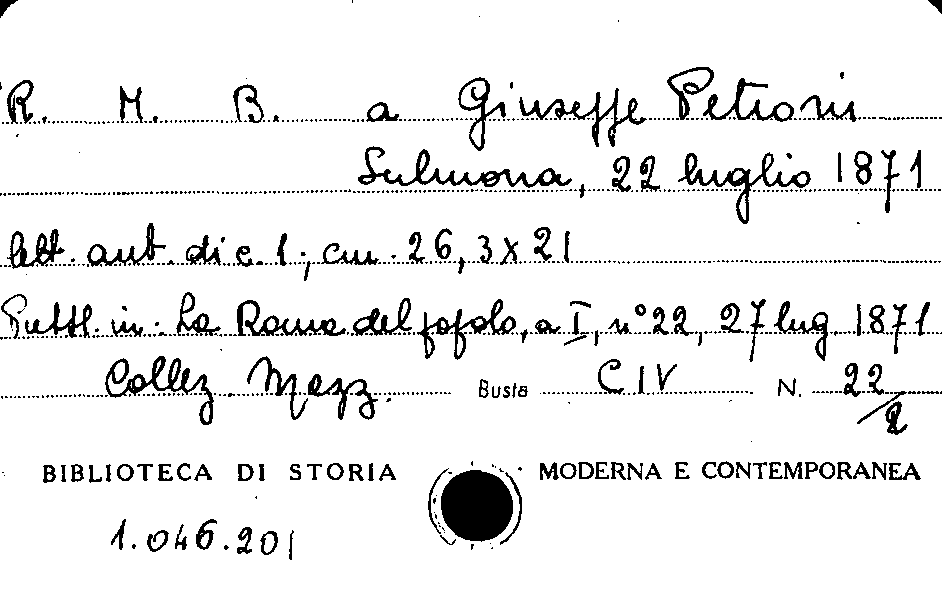 R. M. B. a Giuseppe Petroni
Sulmona, 22 luglio 1871
lett. aut. di c. 1; cm. 26,3 x 21
Pubbl. in: La Roma del popolo, a I, n° 22, 27 lug 1871
Collez. Mazz. Busta CIV N. 22/2
BIBLIOTECA DI STORIA MODERNA E CONTEMPORANEA
1.046.201